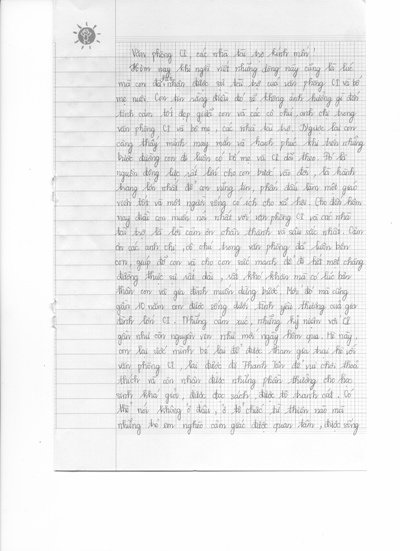 Văn phòng CI, các nhà tài trợ kính mến!
Hôm nay khi ngồi viết những dòng này cũng là lúc
mà con đã nhận được sự tài trợ của văn phòng CI và bố
mẹ nuôi. Con tin rằng điều đó sẽ không ảnh hưởng gì đến
tình cảm tốt đẹp giữa con và các cô chú, anh chị trong
văn phòng CI và bố mẹ, các nhà tài trợ. Ngược lại con
cảng thấy mình may mắn và hạnh phúc khi trên những
bước đường con đi luôn có bố mẹ và CI dõi theo. Đó là
nguồn động lực rất lớn cho con bước vào đời, là hành
trang lớn nhất để con vững tin, phấn đấu làm một giáo
viên tốt và một người sống có ích cho xã hội. Cho đến hôm
nay điều con muốn nói nhất với văn phòng CI và các nhà
tài trợ là lời cảm ơn chân thành và sâu sắc nhất. Cảm
ơn các anh chị, cô chú trong văn phòng đã luôn bên
con, giúp đỡ con và cho con sức mạnh để đi hết một chặng
đường thực sự rất dài, rất khó khăn mà có lúc bản
thân con và gia đình muốn dừng bước. Mới đó mà cũng
gần 10 năm con được sống dưới tình yêu thương của gia
đình lớn CI. Những cảm xúc, những kỷ niệm với CI
gần như còn nguyên vẹn như mới ngày hôm qua. Hè này,
con lại ước mình bé lại để được tham gia trại hè với
văn phòng CI, lại được đi Thanh Tân để vui chơi thoả
thích và còn nhận được những phần thưởng cho học
sinh khá giỏi, được đọc sách, được tô tranh cát. Có
thể nói không ở đâu, ở tổ chức từ thiện nào mà
những trẻ em nghèo cảm giác được quan tâm, được sống